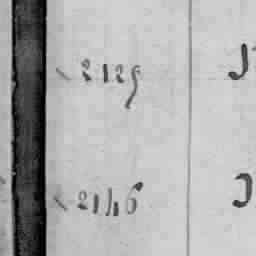 2129 J
2146 J